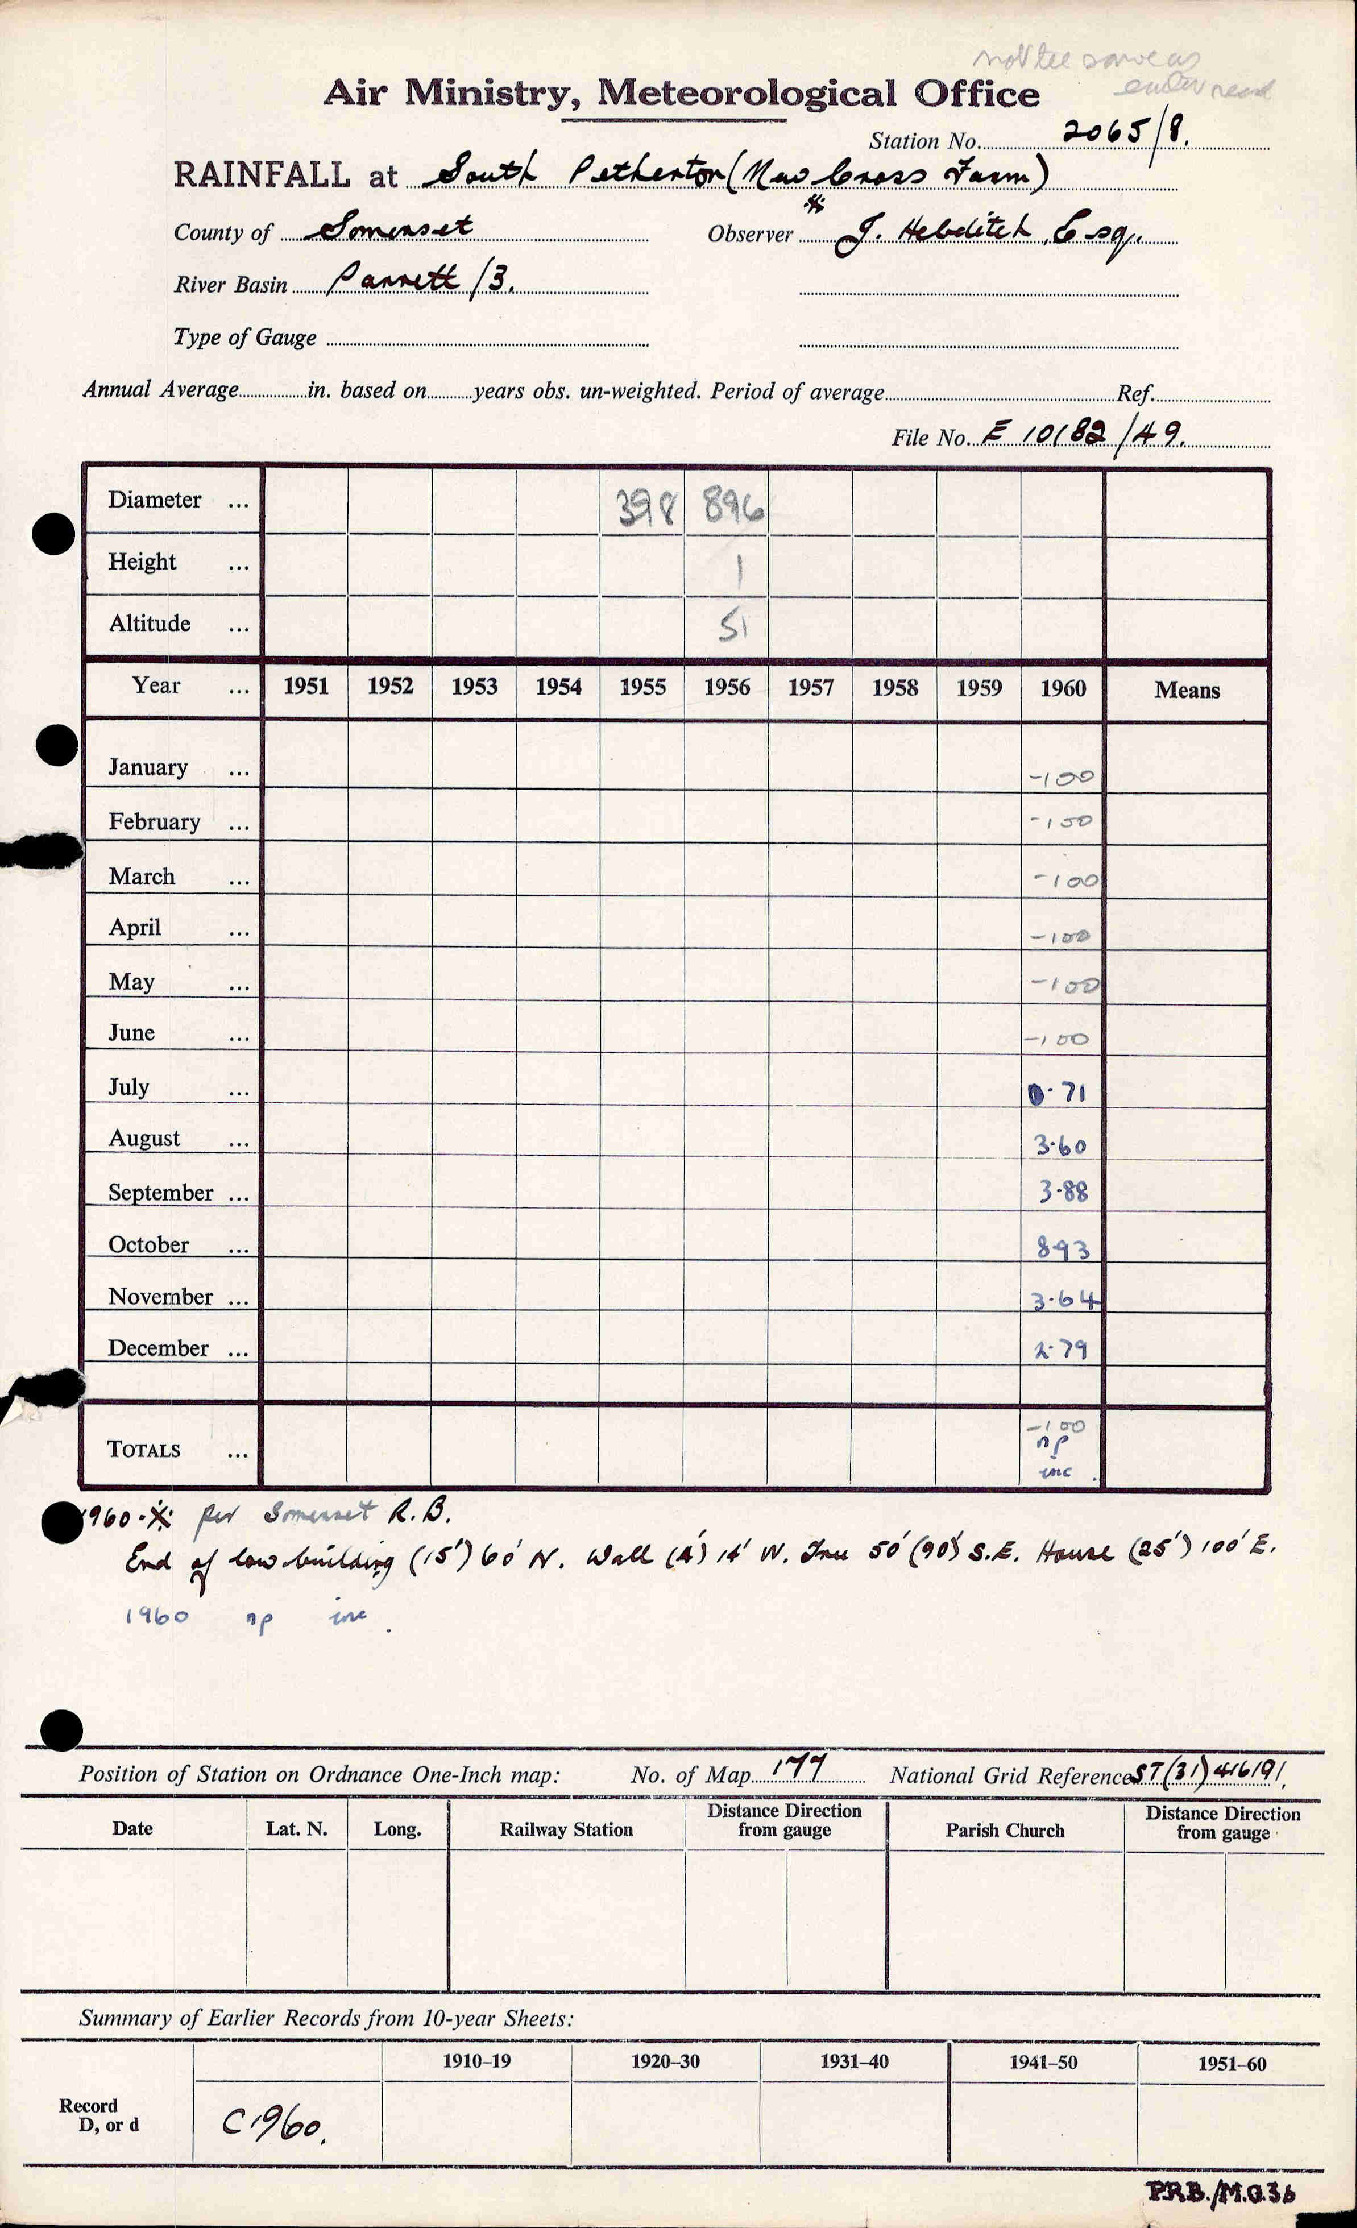 not the same as
earlier record
Air Ministry, Meteorological Office
Station No. 2065/8.
RAINFALL at South Petherton (New Cross Farm)
County of Somerset Observer J. Hebditch, Esq.
River Basin Parrett /3.
Type of Gauge
Annual Average in. based on years obs. un-weighted. Period of average Ref.
File No. E 10182/49.
Diameter ... 398 896
Height ... 1
Altitude ... 51
Year ... 1951 1952 1953 1954 1955 1956 1957 1958 1959 1960 Means
January ... -100
February ... -100
March ... -100
April ... -100
May ... -100
June ... -100
July ... 0.71
August ... 3.60
September ... 3.88
October ... 8.93
November ... 3.64
December ... 2.79
TOTALS ... -100
np
inc
1960 - X: per Somerset R.B.
End of low building (15') 60' N. Wall (4') 14' W. Tree 50' (90') S.E. House (25') 100' E.
1960 np inc.
Position of Station on Ordnance One-Inch map: No. of Map 177 National Grid Reference ST (31) 416191.
Date Lat. N. Long. Railway Station Distance Direction from gauge Parish Church Distance Direction from gauge
Summary of Earlier Records from 10-year Sheets:
1910–19 1920–30 1931–40 1941–50 1951–60
Record
D, or d C1960.
P.R.B./M.O.36